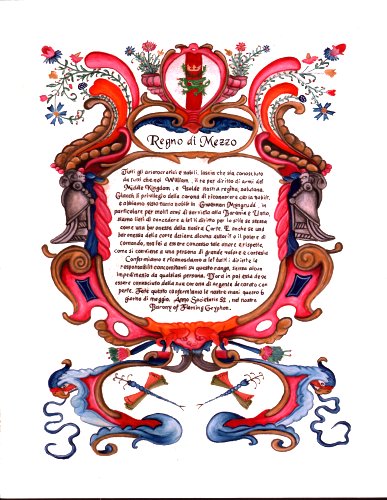 Regno di Mezzo
Tutti gli aristocratici e nobili, lascia che sia conosciuto
da tutti che noi William, il re per diritto di armi del
Middle Kingdom, e Isolde nostra regina, salutano.
Giacché il privilegio della corona di riconoscere la nobilt,
e abbiamo visto tanta nobilt in Gwenhwn Myngrudd, in
particolare per molti anni di servizio alla Baronia e
siamo lieti di concedere a lei il diritto per lo stile se stessa
come una baronessa della nostra Corte. E anche se una
baronessa della corte detiene alcuna autorit o il potere di
comando, ma lei a essere concesso tale onore e rispetto,
come si conviene a una persona di grande valore e cortesia
Confermiamo e riconosciamo a lei tutti i diritti e le
responsabilit concomitanti su questo rango, senza alcun
impedimento da qualsiasi persona. D'ora in poi essa deve
essere conosciuto dalla sua corona di Argento decorato con
perle. Fate questo confermiamo le nostre mani questo 6
giorno di maggio, Anno Societatis 52, nel nostra
Barony of Flaming Gryphon.